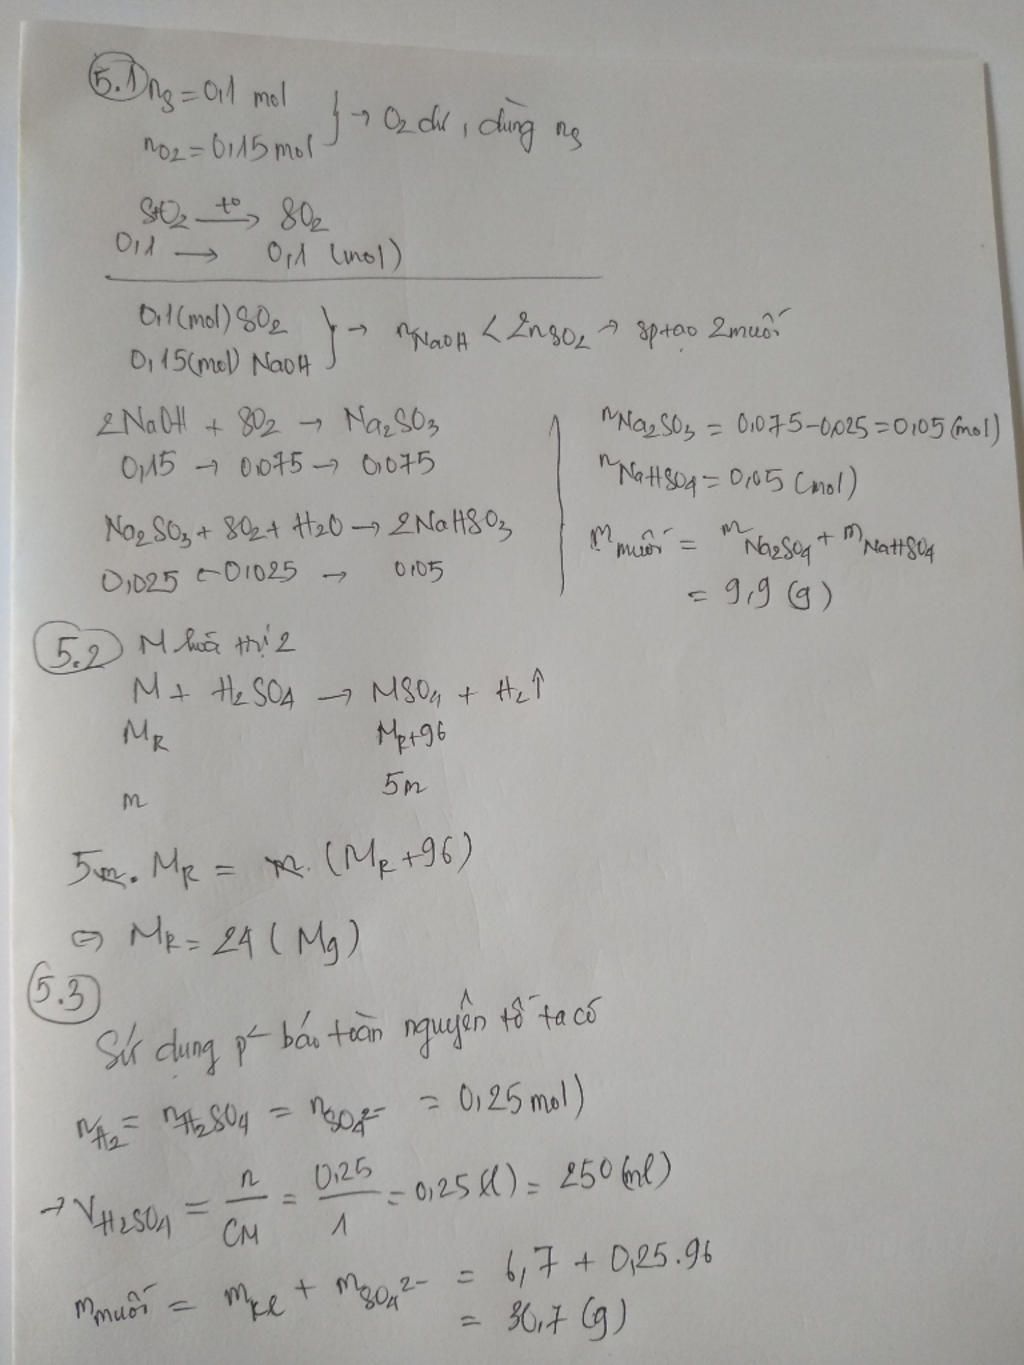 5.1 nS = 0,1 mol
nO2 = 0,15 mol } → O2 dư, dùng nS
S+O2 —t°→ SO2
0,1 → 0,1 (mol)
0,1(mol) SO2
0,15(mol) NaOH } → nNaOH < 2nSO2 → sp tạo 2 muối
2NaOH + SO2 → Na2SO3
0,15 → 0,075 → 0,075
Na2SO3 + SO2 + H2O → 2NaHSO3
0,025 ← 0,025 → 0,05
nNa2SO3 = 0,075 - 0,025 = 0,05 (mol)
nNaHSO4 = 0,05 (mol)
m muối = mNa2SO4 + mNaHSO4
= 9,9 (g)
5.2 M hoá trị 2
M + H2SO4 → MSO4 + H2↑
MR MR+96
m 5m
5m. MR = m. (MR+96)
⇔ MR = 24 (Mg)
5.3
Sử dụng p² bảo toàn nguyên tố ta có
nH2 = nH2SO4 = nSO4²⁻ = 0,25 mol)
→ VH2SO4 = n/CM = 0,25/1 = 0,25 (l) = 250 (ml)
m muối = mKl + mSO4²⁻ = 6,7 + 0,25.96
= 30,7 (g)